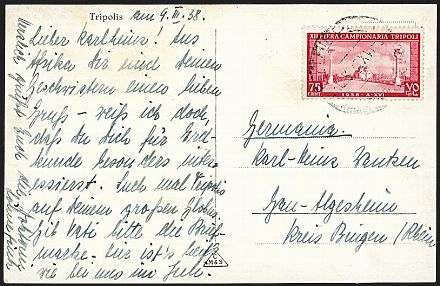 Tripolis am 9. III. 38.
Lieber Karlheinz! Aus
Afrika Dir und Deinen
Geschwistern einen lieben
Gruß – weiß ich doch,
daß du dich für Erd-
kunde besonders inter-
essierst. Such mal Tripolis
auf deinem großen Globus.
Gib Vati bitte die Brief-
marke. Hier ist's heiß
wie bei uns im Juli.
XII FIERA CAMPIONARIA TRIPOLI
75 CENT.
1938 - A - XVI
Germania.
Karl-Heinz
Gau-Algesheim
Kreis Bingen (Rhein)